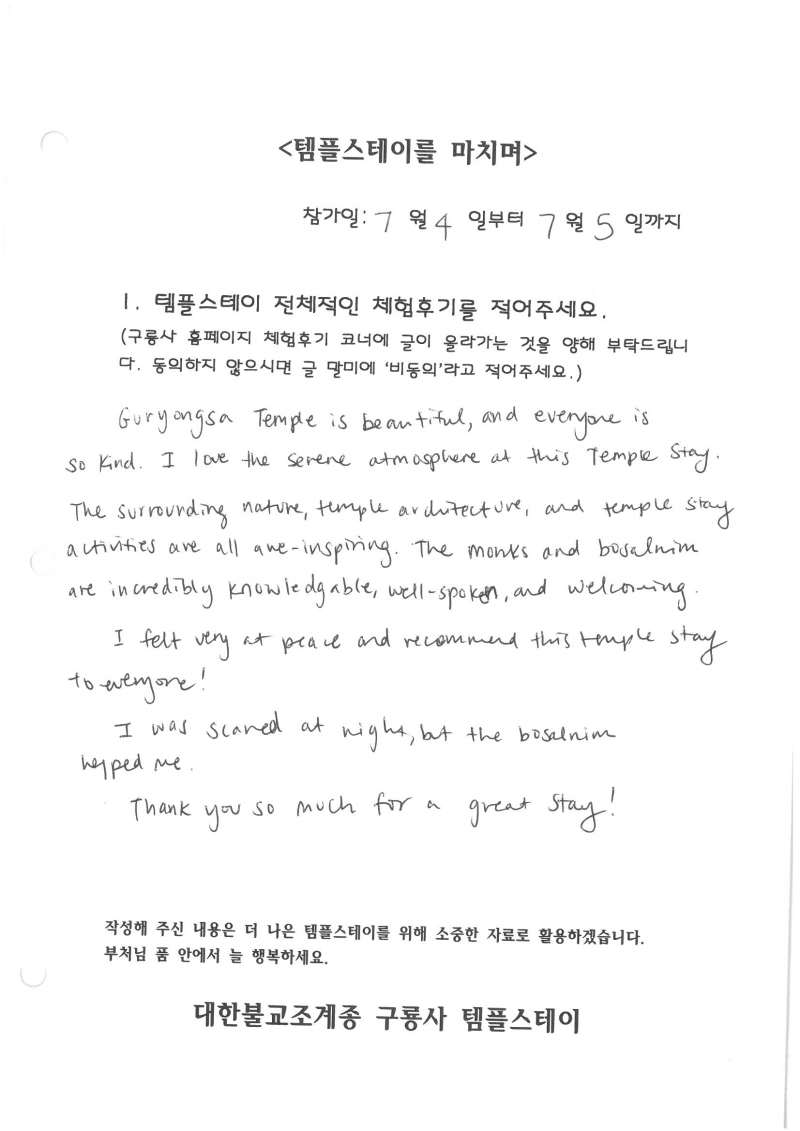 <템플스테이를 마치며>
참가일: 7 월 4 일부터 7 월 5 일까지
1. 템플스테이 전체적인 체험후기를 적어주세요.
(구룡사 홈페이지 체험후기 코너에 글이 올라가는 것을 양해 부탁드립니
다. 동의하지 않으시면 글 말미에 '비동의'라고 적어주세요.)
Guryongsa Temple is beautiful, and everyone is
so kind. I love the serene atmosphere at this Temple Stay.
The surrounding nature, temple architecture, and temple stay
activities are all awe-inspiring. The monks and bosalnim
are incredibly knowledgable, well-spoken, and welcoming.
I felt very at peace and recommend this temple stay
to everyone!
I was scared at night, but the bosalnim
helped me.
Thank you so much for a great stay!
작성해 주신 내용은 더 나은 템플스테이를 위해 소중한 자료로 활용하겠습니다.
부처님 품 안에서 늘 행복하세요.
대한불교조계종 구룡사 템플스테이